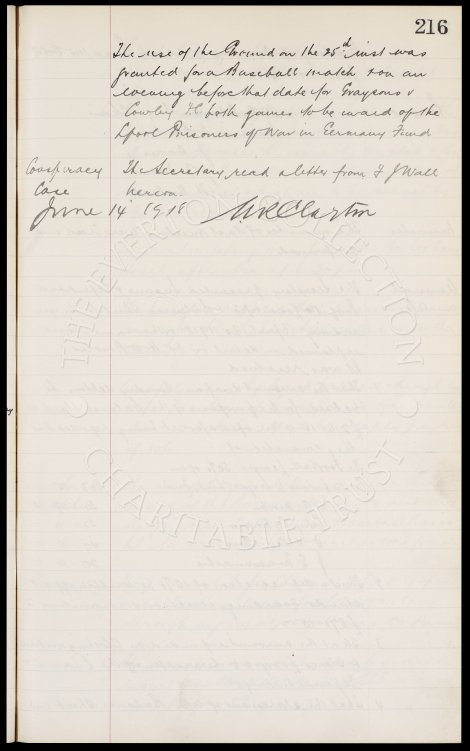 216
The use of the Ground on the 25d inst was
granted for a Baseball match & on an
evening before that date for Graysons v
Cowley FC both games to be in aid of the
Lpool Prisoners of War in Germany Fund
Conspiracy The Secretary read a letter from F J Wall
Case hereon.
June 14 1918 W R Clayton
THE EVERTON COLLECTION
CHARITABLE TRUST